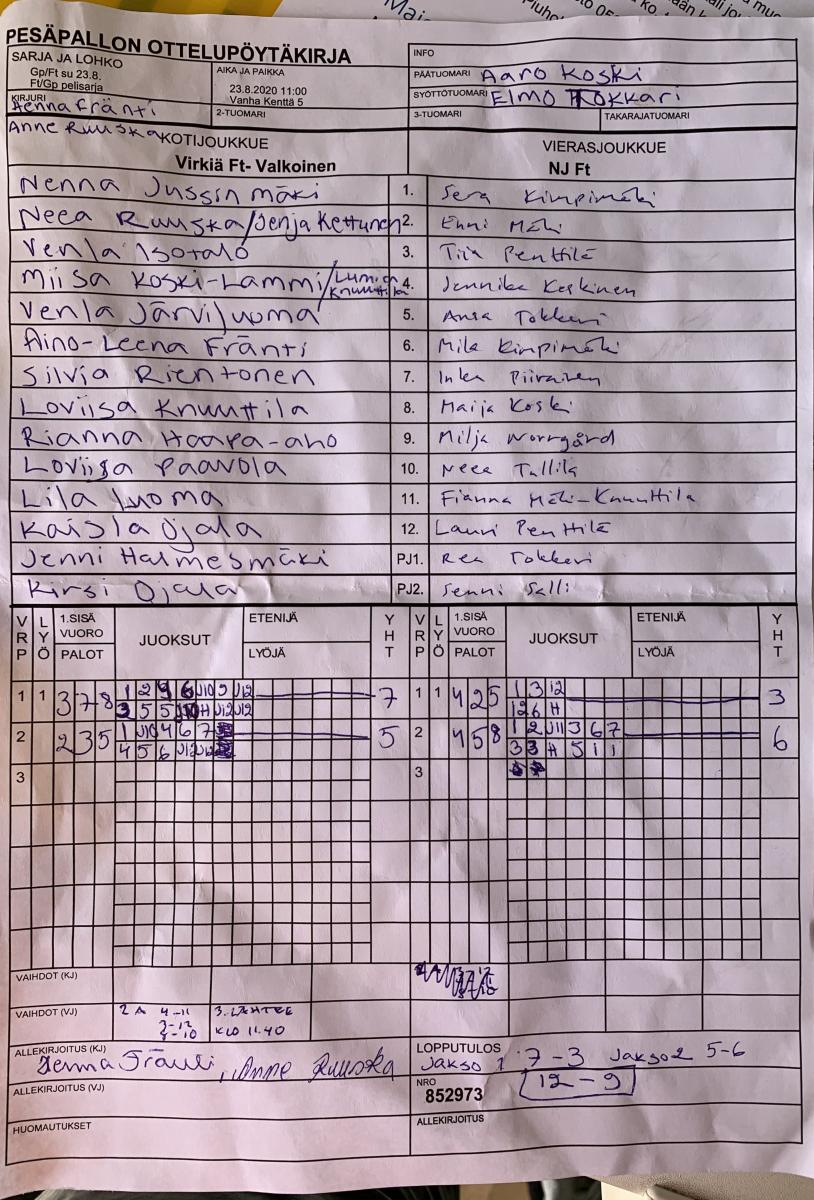 PESÄPALLON OTTELUPÖYTÄKIRJA
SARJA JA LOHKO
Gp/Ft su 23.8.
Ft/Gp pelisarja
AIKA JA PAIKKA
23.8.2020 11:00
Vanha Kenttä 5
INFO
PÄÄTUOMARI Aaro Koski
SYÖTTÖTUOMARI Elmo Tokkari
KIRJURI
Henna Fränti
Anne Ruuska
2-TUOMARI
3-TUOMARI
TAKARAJATUOMARI
KOTIJOUKKUE
Virkiä Ft- Valkoinen
VIERASJOUKKUE
NJ Ft
Nenna Jussinmäki 1. Sera Kimpimäki
Neea Ruuska/Senja Kettunen 2. Enni Mäki
Venla Isotalo 3. Tiia Penttilä
Miisa Koski-Lammi/Lumia Knuuttila 4. Jennika Koskinen
Venla Järviluoma 5. Ansa Tokkari
Aino-Leena Fränti 6. Mila Kimpimäki
Silvia Rientonen 7. Inka Piirainen
Loviisa Knuuttila 8. Maija Koski
Rianna Haapa-aho 9. Milja Norrgård
Loviisa Paavola 10. Neea Tallila
Lila Luoma 11. Fianna Mäki-Knuuttila
Kaisla Ojala 12. Lauri Penttilä
Jenni Halmesmäki PJ1. Rea Tokkari
Kirsi Ojala PJ2. Jenni Salli
VRP LYÖ 1.SISÄ VUORO PALOT JUOKSUT ETENIJÄ LYÖJÄ YHT VRP LYÖ 1.SISÄ VUORO PALOT JUOKSUT ETENIJÄ LYÖJÄ YHT
1 1 3 7 8 1 2 9 6 J10 9 J12 7 1 1 4 2 5 1 3 12 3
3 5 5 H J12 J12 12 6 H
2 2 3 5 1 J10 4 6 7 5 2 4 5 8 1 2 J11 3 6 7 6
4 5 6 J12 J12 3 3 H 5 1 1
3 3
VAIHDOT (KJ)
VAIHDOT (VJ) 2A 4-11 3. LÄHTEE
3-12 KLO 11.40
8-10
ALLEKIRJOITUS (KJ) Henna Fränti, Anne Ruuska
LOPPUTULOS
Jakso 1 7-3 Jakso 2 5-6
ALLEKIRJOITUS (VJ)
NRO
852973
12-9
HUOMAUTUKSET
ALLEKIRJOITUS